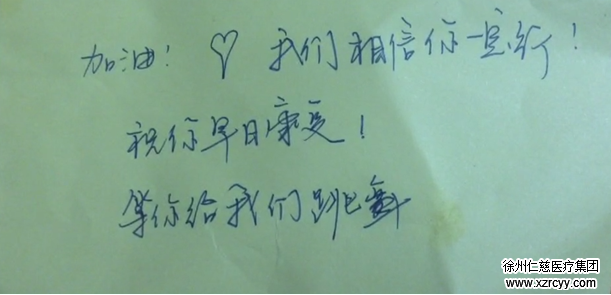 加油！♡ 我们相信你一定行！
祝你早日康复！
等你给我们跳舞
徐州仁慈医疗集团
www.xzrcyy.com